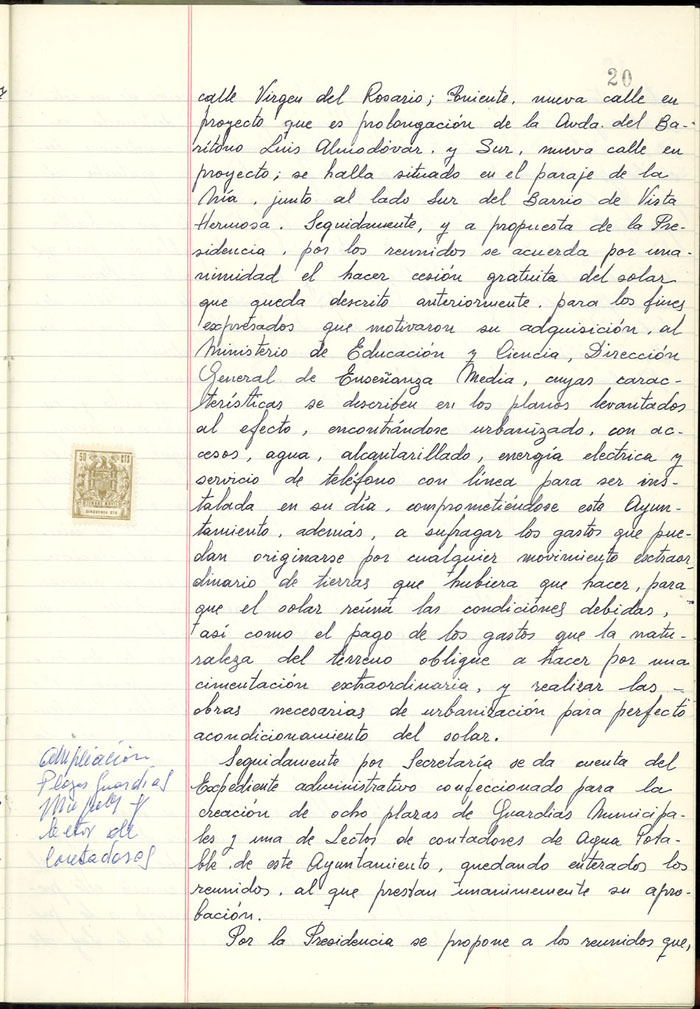 20
calle Virgen del Rosario; Poniente, nueva calle en
proyecto que es prolongación de la Avda. del Ba-
rítono Luis Almodóvar, y Sur, nueva calle en
proyecto; se halla situado en el paraje de la
Vía, junto al lado Sur del Barrio de Vista
Hermosa. Seguidamente, y a propuesta de la Pre-
sidencia, por los reunidos se acuerda por una-
nimidad el hacer cesión gratuita del solar
que queda descrito anteriormente, para los fines
expresados que motivaron su adquisición, al
Ministerio de Educación y Ciencia, Dirección
General de Enseñanza Media, cuyas carac-
terísticas se describen en los planos levantados
al efecto, encontrándose urbanizado, con ac-
cesos, agua, alcantarillado, energía electrica y
servicio de teléfono con línea para ser ins-
talada en su día, comprometiéndose este Ayun-
tamiento, además, a sufragar los gastos que pue-
dan originarse por cualquier movimiento extraor-
dinario de tierras que hubiera que hacer, para
que el solar reúna las condiciones debidas,
así como el pago de los gastos que la natu-
raleza del terreno oblique a hacer por una
cimentación extraordinaria, y realizar las
obras necesarias de urbanización para perfecto
acondicionamiento del solar.
50 CTS
Ampliación
Plazas Guardias
Municipales y
lector de
contadores
Seguidamente por Secretaría se da cuenta del
Expediente administrativo confeccionado para la
creación de ocho plazas de Guardias Municipa-
les y una de Lector de contadores de Agua Pota-
ble, de este Ayuntamiento, quedando enterados los
reunidos, al que prestan unanimemente su apro-
bación.
Por la Presidencia se propone a los reunidos que,